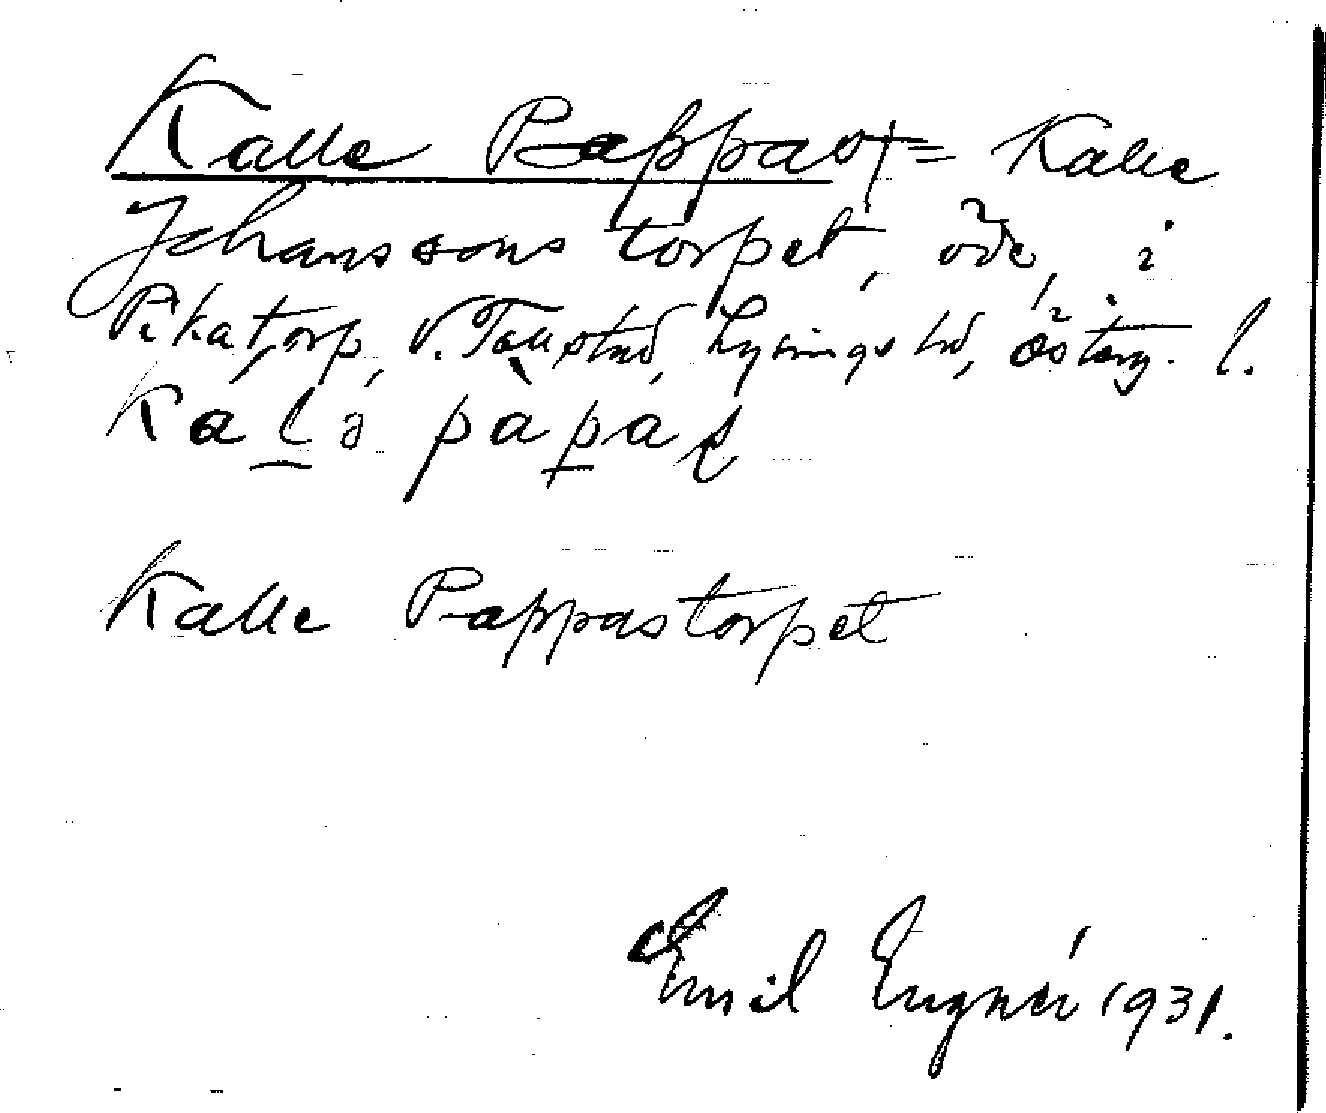 Kalle Pappas = Kalle
Johanssons torpet, öde, i
Pikatorp, V. Tollstad, Lysings hd, Österg. l.
Kalle Pappastorpet
Emil Eugnér 1931.